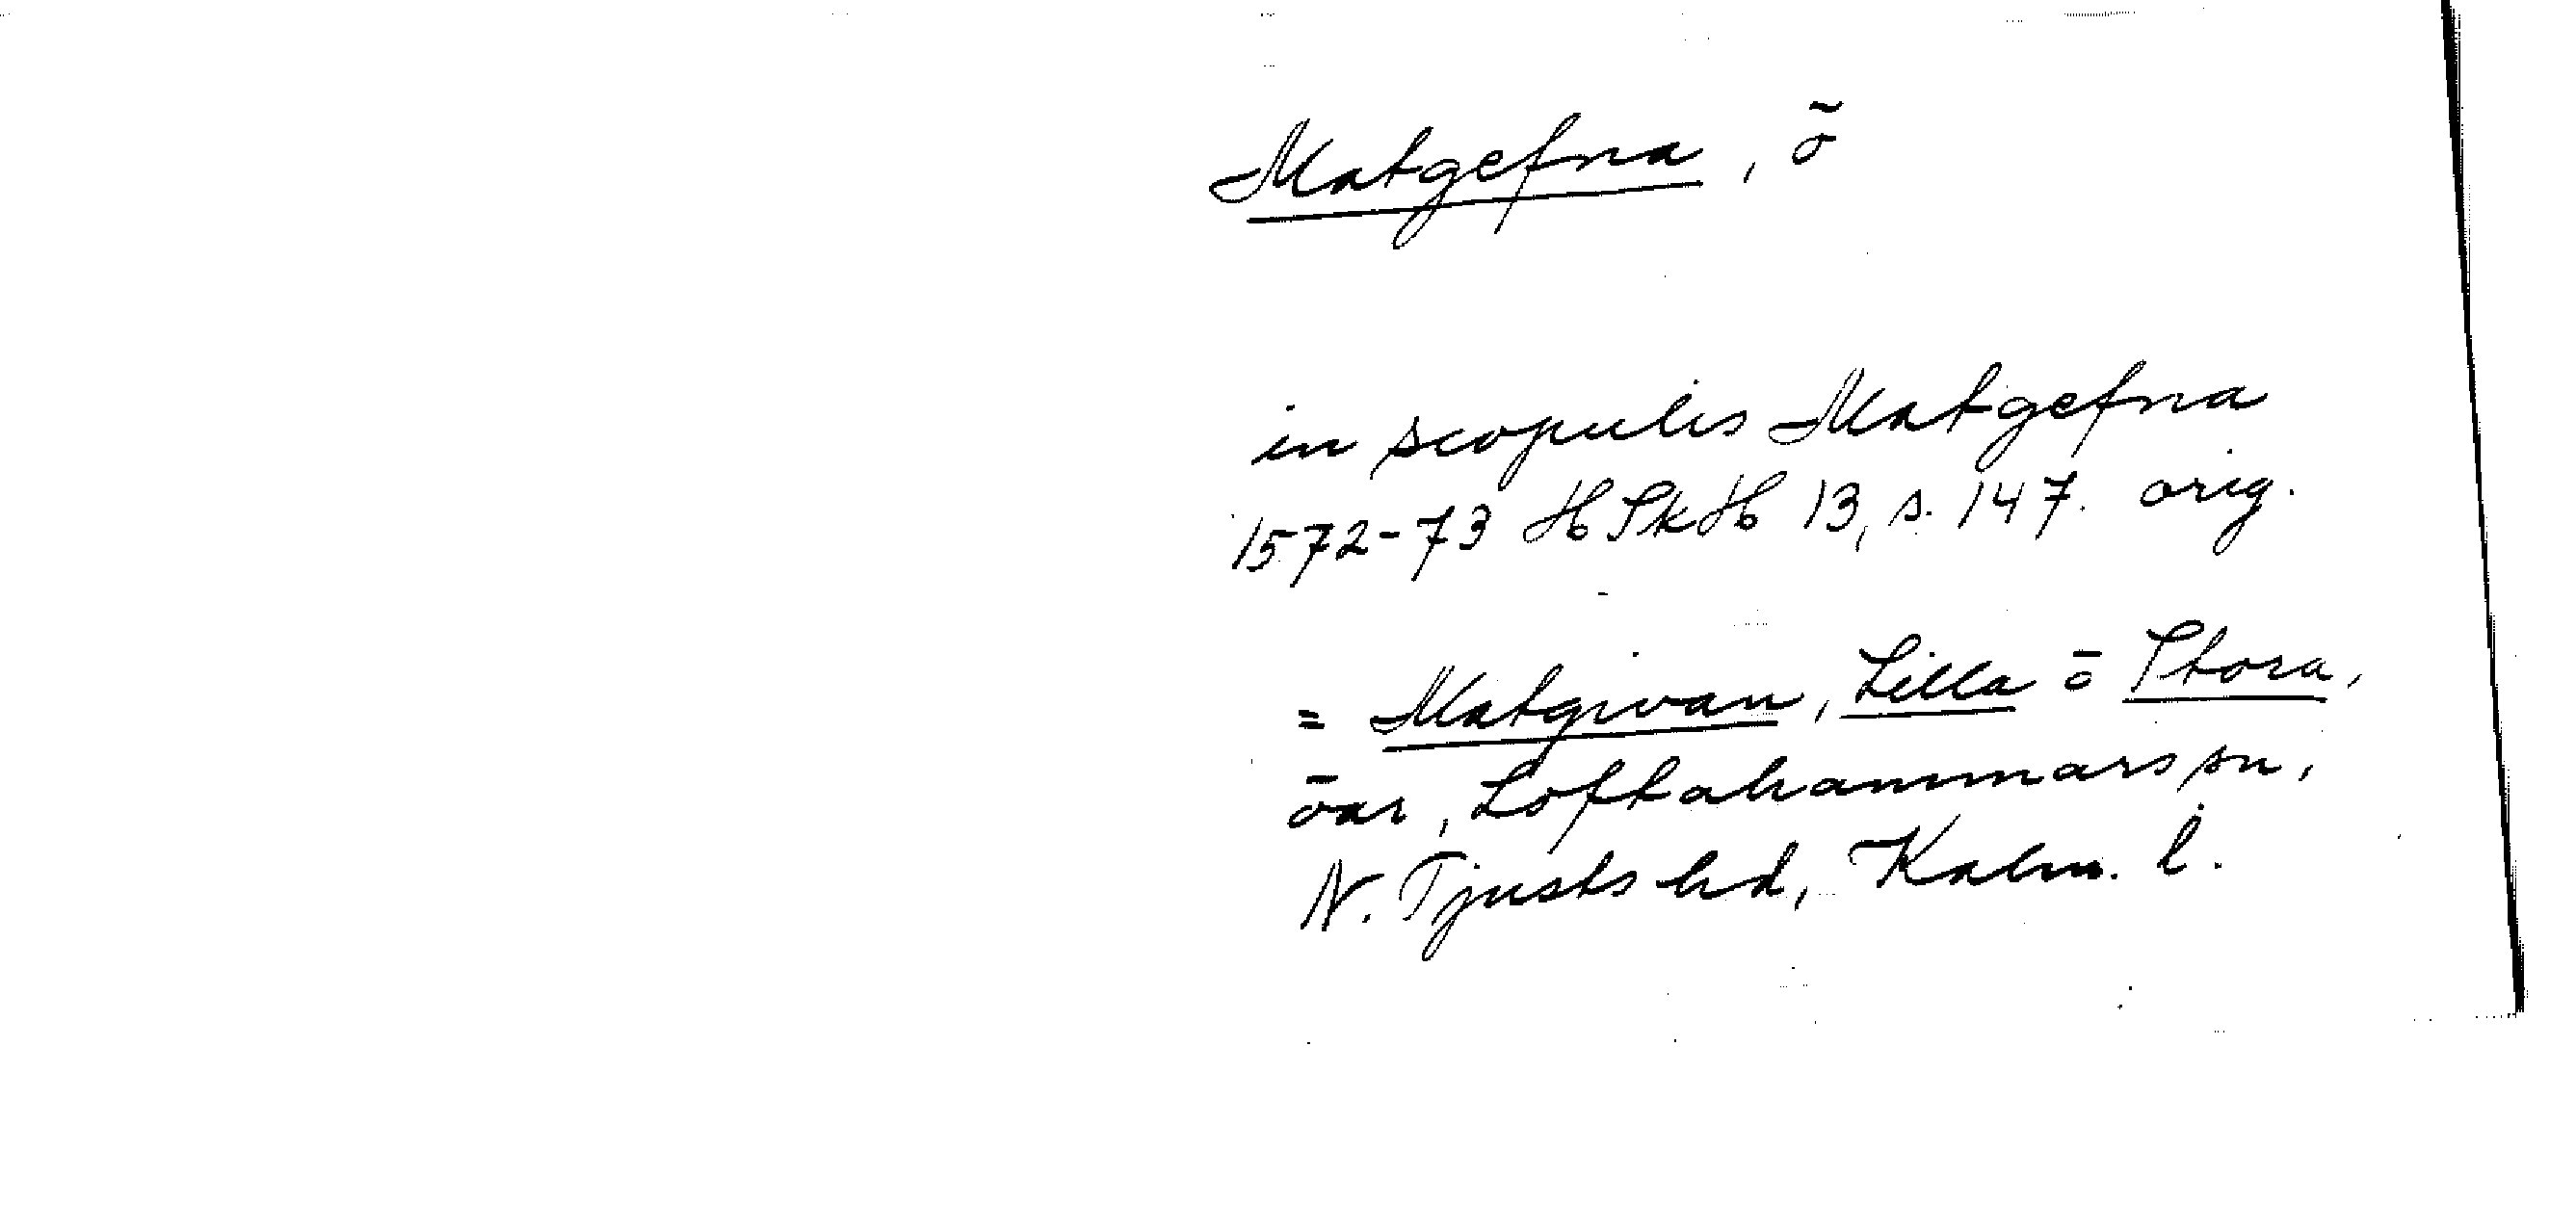 Matgefna, ö
in scopulis Matgefna
1572-73 HSkH 13, s. 147. orig.
= Matgivan, Lilla o Stora,
öar, Loftahammars sn,
N. Tjusts hd, Kalm. l.